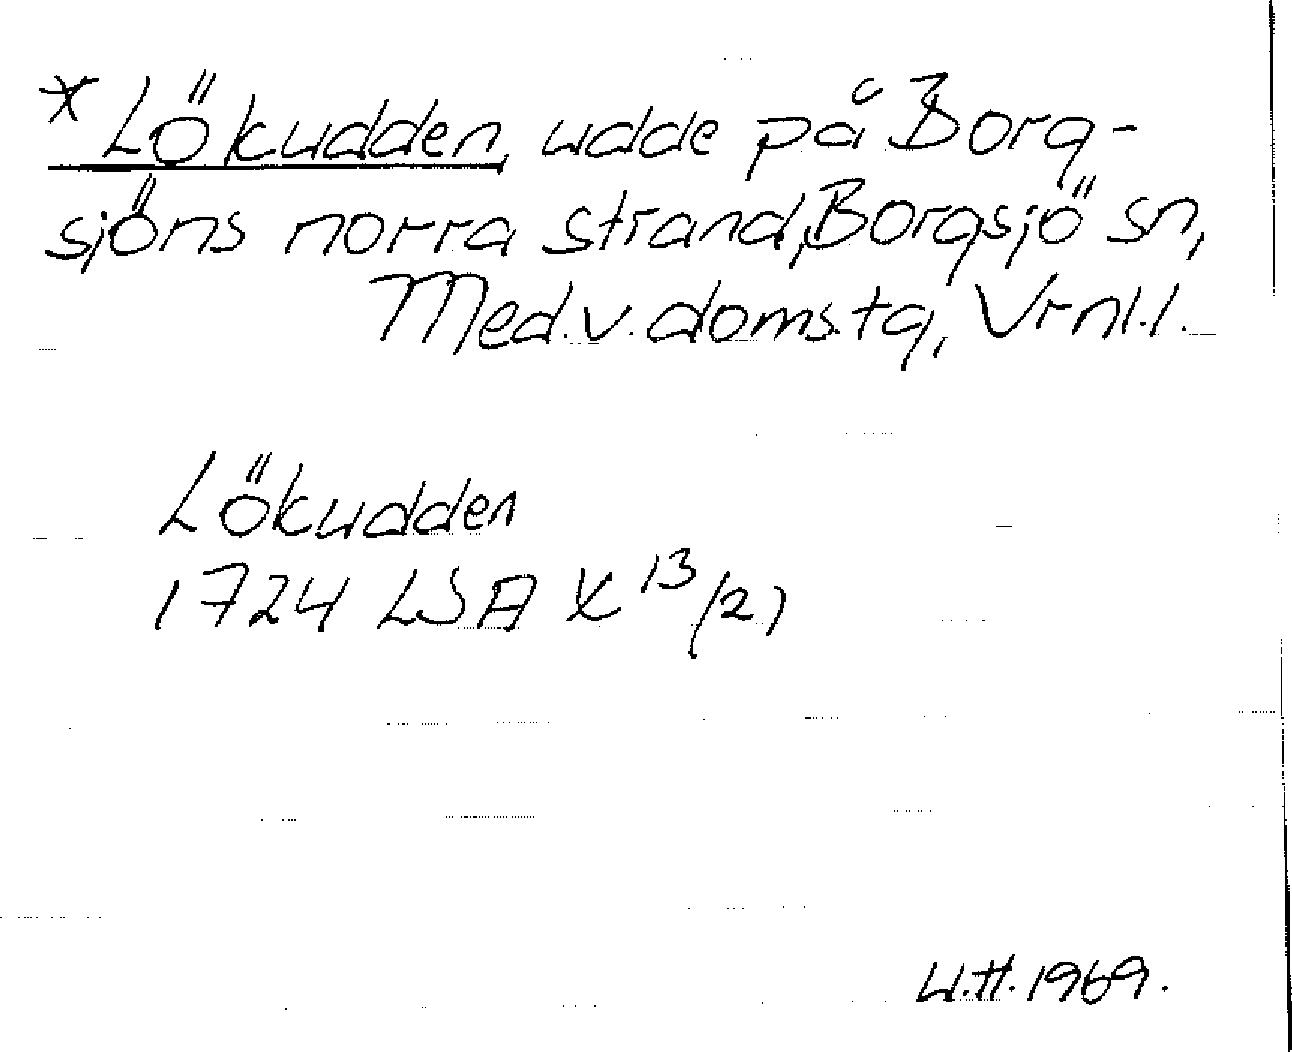 *Lökudden, udde på Borg-
sjöns norra strand, Borgsjö sn,
Med.v.doms.tg, Vrnl.l.
Lökudden
1724 LSA X 13/(2)
U.H.1969.